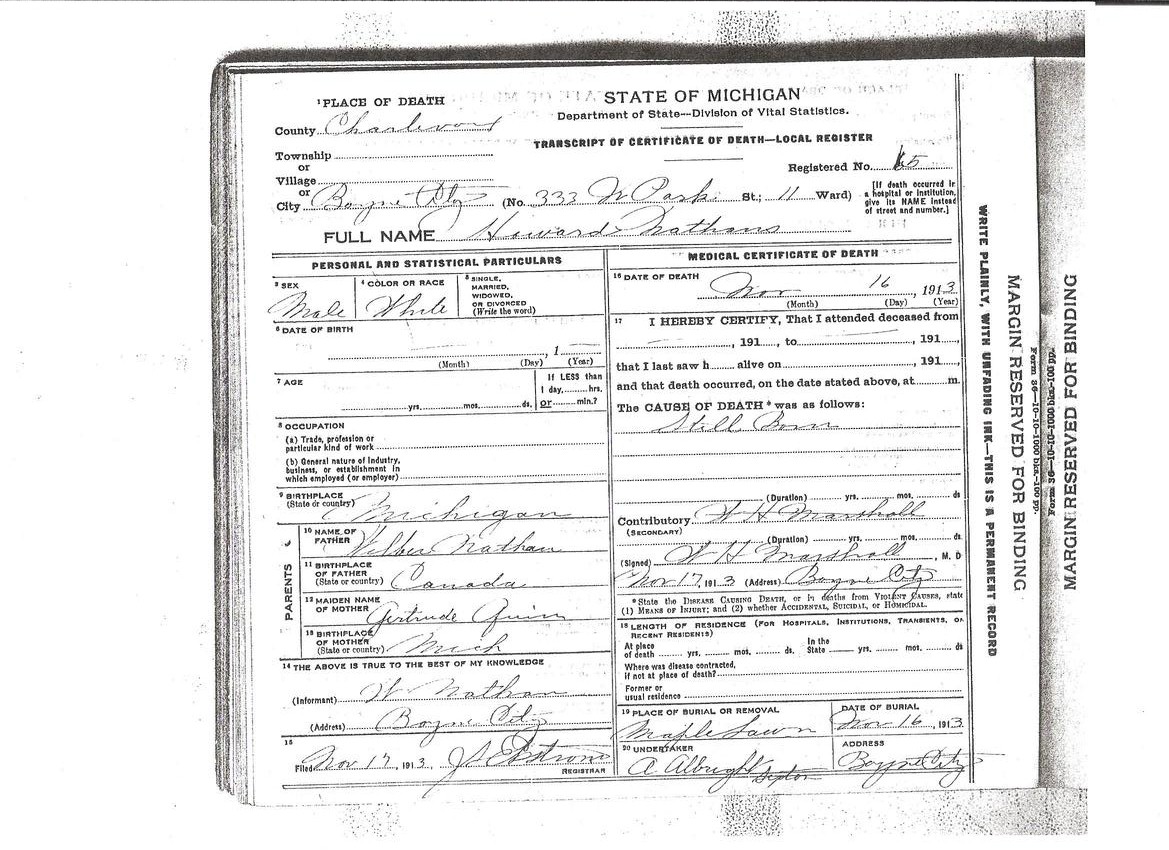 ¹PLACE OF DEATH
STATE OF MICHIGAN
Department of State—Division of Vital Statistics.
County Charlevoix
TRANSCRIPT OF CERTIFICATE OF DEATH—LOCAL REGISTER
Township
or
Registered No. 65
Village
or
City Boyne City (No. 333 W Park St.; 11 Ward)
[If death occurred in a hospital or institution, give its NAME instead of street and number.]
FULL NAME Howard Nathans
PERSONAL AND STATISTICAL PARTICULARS
³ SEX Male
⁴ COLOR OR RACE White
⁵ SINGLE, MARRIED, WIDOWED, OR DIVORCED (Write the word)
⁶ DATE OF BIRTH
, 1
(Month) (Day) (Year)
⁷ AGE
yrs. mos. ds.
If LESS than
1 day, hrs.
or min.?
⁸ OCCUPATION
(a) Trade, profession or
particular kind of work
(b) General nature of industry,
business, or establishment in
which employed (or employer)
⁹ BIRTHPLACE
(State or country) Michigan
PARENTS
¹⁰ NAME OF
FATHER Wilber Nathan
¹¹ BIRTHPLACE
OF FATHER
(State or country) Canada
¹² MAIDEN NAME
OF MOTHER Gertrude Quinn
¹³ BIRTHPLACE
OF MOTHER
(State or country) Mich
¹⁴ THE ABOVE IS TRUE TO THE BEST OF MY KNOWLEDGE
(Informant) W Nathan
(Address) Boyne City
¹⁵
Filed Nov 17, 1913
REGISTRAR
MEDICAL CERTIFICATE OF DEATH
¹⁶ DATE OF DEATH
Nov 16, 1913
(Month) (Day) (Year)
¹⁷ I HEREBY CERTIFY, That I attended deceased from
, 191 , to , 191
that I last saw h alive on , 191
and that death occurred, on the date stated above, at m.
The CAUSE OF DEATH * was as follows:
Still Born
(Duration) yrs. mos. ds
Contributory W H Marshall
(SECONDARY)
(Duration) yrs. mos. ds.
(Signed) W H Marshall, M. D
Nov 17, 1913 (Address) Boyne City
*State the DISEASE CAUSING DEATH, or in deaths from VIOLENT CAUSES, state
(1) MEANS OF INJURY; and (2) whether ACCIDENTAL, SUICIDAL, OR HOMICIDAL.
¹⁸ LENGTH OF RESIDENCE (FOR HOSPITALS, INSTITUTIONS, TRANSIENTS, OR
RECENT RESIDENTS)
At place In the
of death yrs. mos. ds. State yrs. mos. ds
Where was disease contracted,
if not at place of death?
Former or
usual residence
¹⁹ PLACE OF BURIAL OR REMOVAL
Maple Lawn
DATE OF BURIAL
Nov 16, 1913
²⁰ UNDERTAKER
A Albright Sexton
ADDRESS
Boyne City
WRITE PLAINLY, WITH UNFADING INK—THIS IS A PERMANENT RECORD
MARGIN RESERVED FOR BINDING
Form 36—10-10-1000 bks.-100 pp.
MARGIN RESERVED FOR BINDING